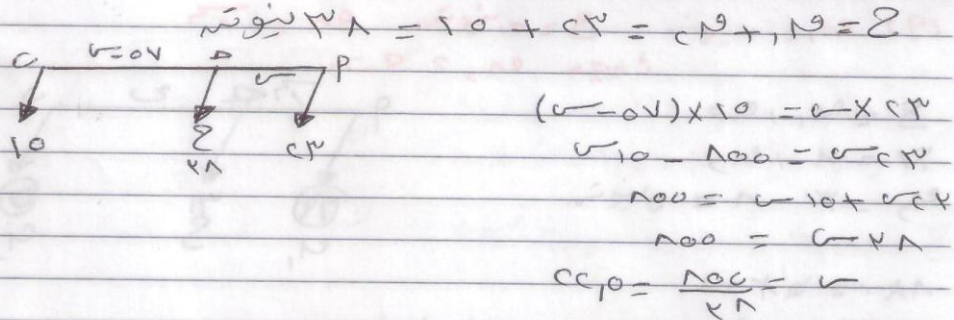 ح = ق١ + ق٢ = ٢٣ + ١٥ = ٣٨ نيوتن
ب ٥٧ – س س أ
١٥ ح ٢٣
٣٨
٢٣ × س = ١٥ × (٥٧ – س)
٢٣ س = ٨٥٥ – ١٥ س
٢٣ س + ١٥ س = ٨٥٥
٣٨ س = ٨٥٥
س = ٨٥٥ / ٣٨ = ٢٢,٥